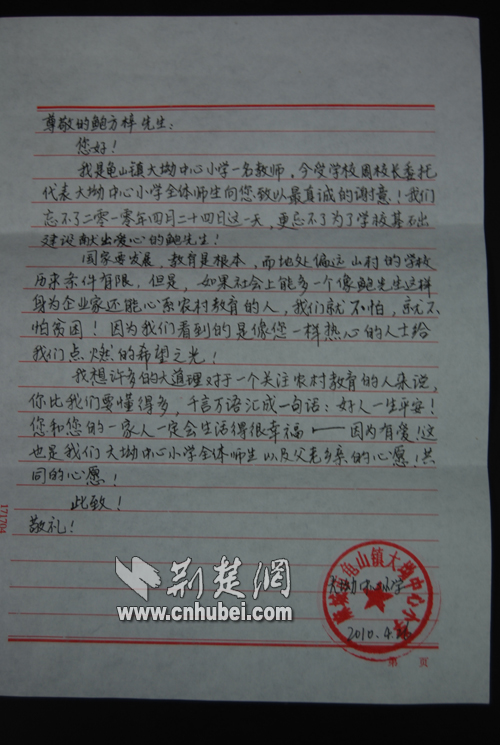 尊敬的鲍方梓先生:
您好!
我是龟山镇大坳中心小学一名教师，今受学校周校长委托
代表大坳中心小学全体师生向您致以最真诚的谢意!我们
忘不了二零一零年四月二十四日这一天，更忘不了为了学校基础
建设献出爱心的鲍先生!
国家要发展，教育是根本，而地处偏远山村的学校
历来条件有限，但是，如果社会上能多一个像鲍先生这样
身为企业家还能心系农村教育的人，我们就不怕，就不
怕贫困!因为我们看到的是像您一样热心的人士给
我们点燃的希望之光!
我想许多的大道理对于一个关注农村教育的人来说，
你比我们要懂得多，千言万语汇成一句话:好人一生平安!
您和您的一家人一定会生活得很幸福——因为有爱!这
也是我们大坳中心小学全体师生以及父老乡亲的心愿!共
同的心愿!
此致!
敬礼!
171704
荆楚网
www.cnhubei.com
龟山镇大坳中心小学
大坳中心小学
2010.4.
第 页